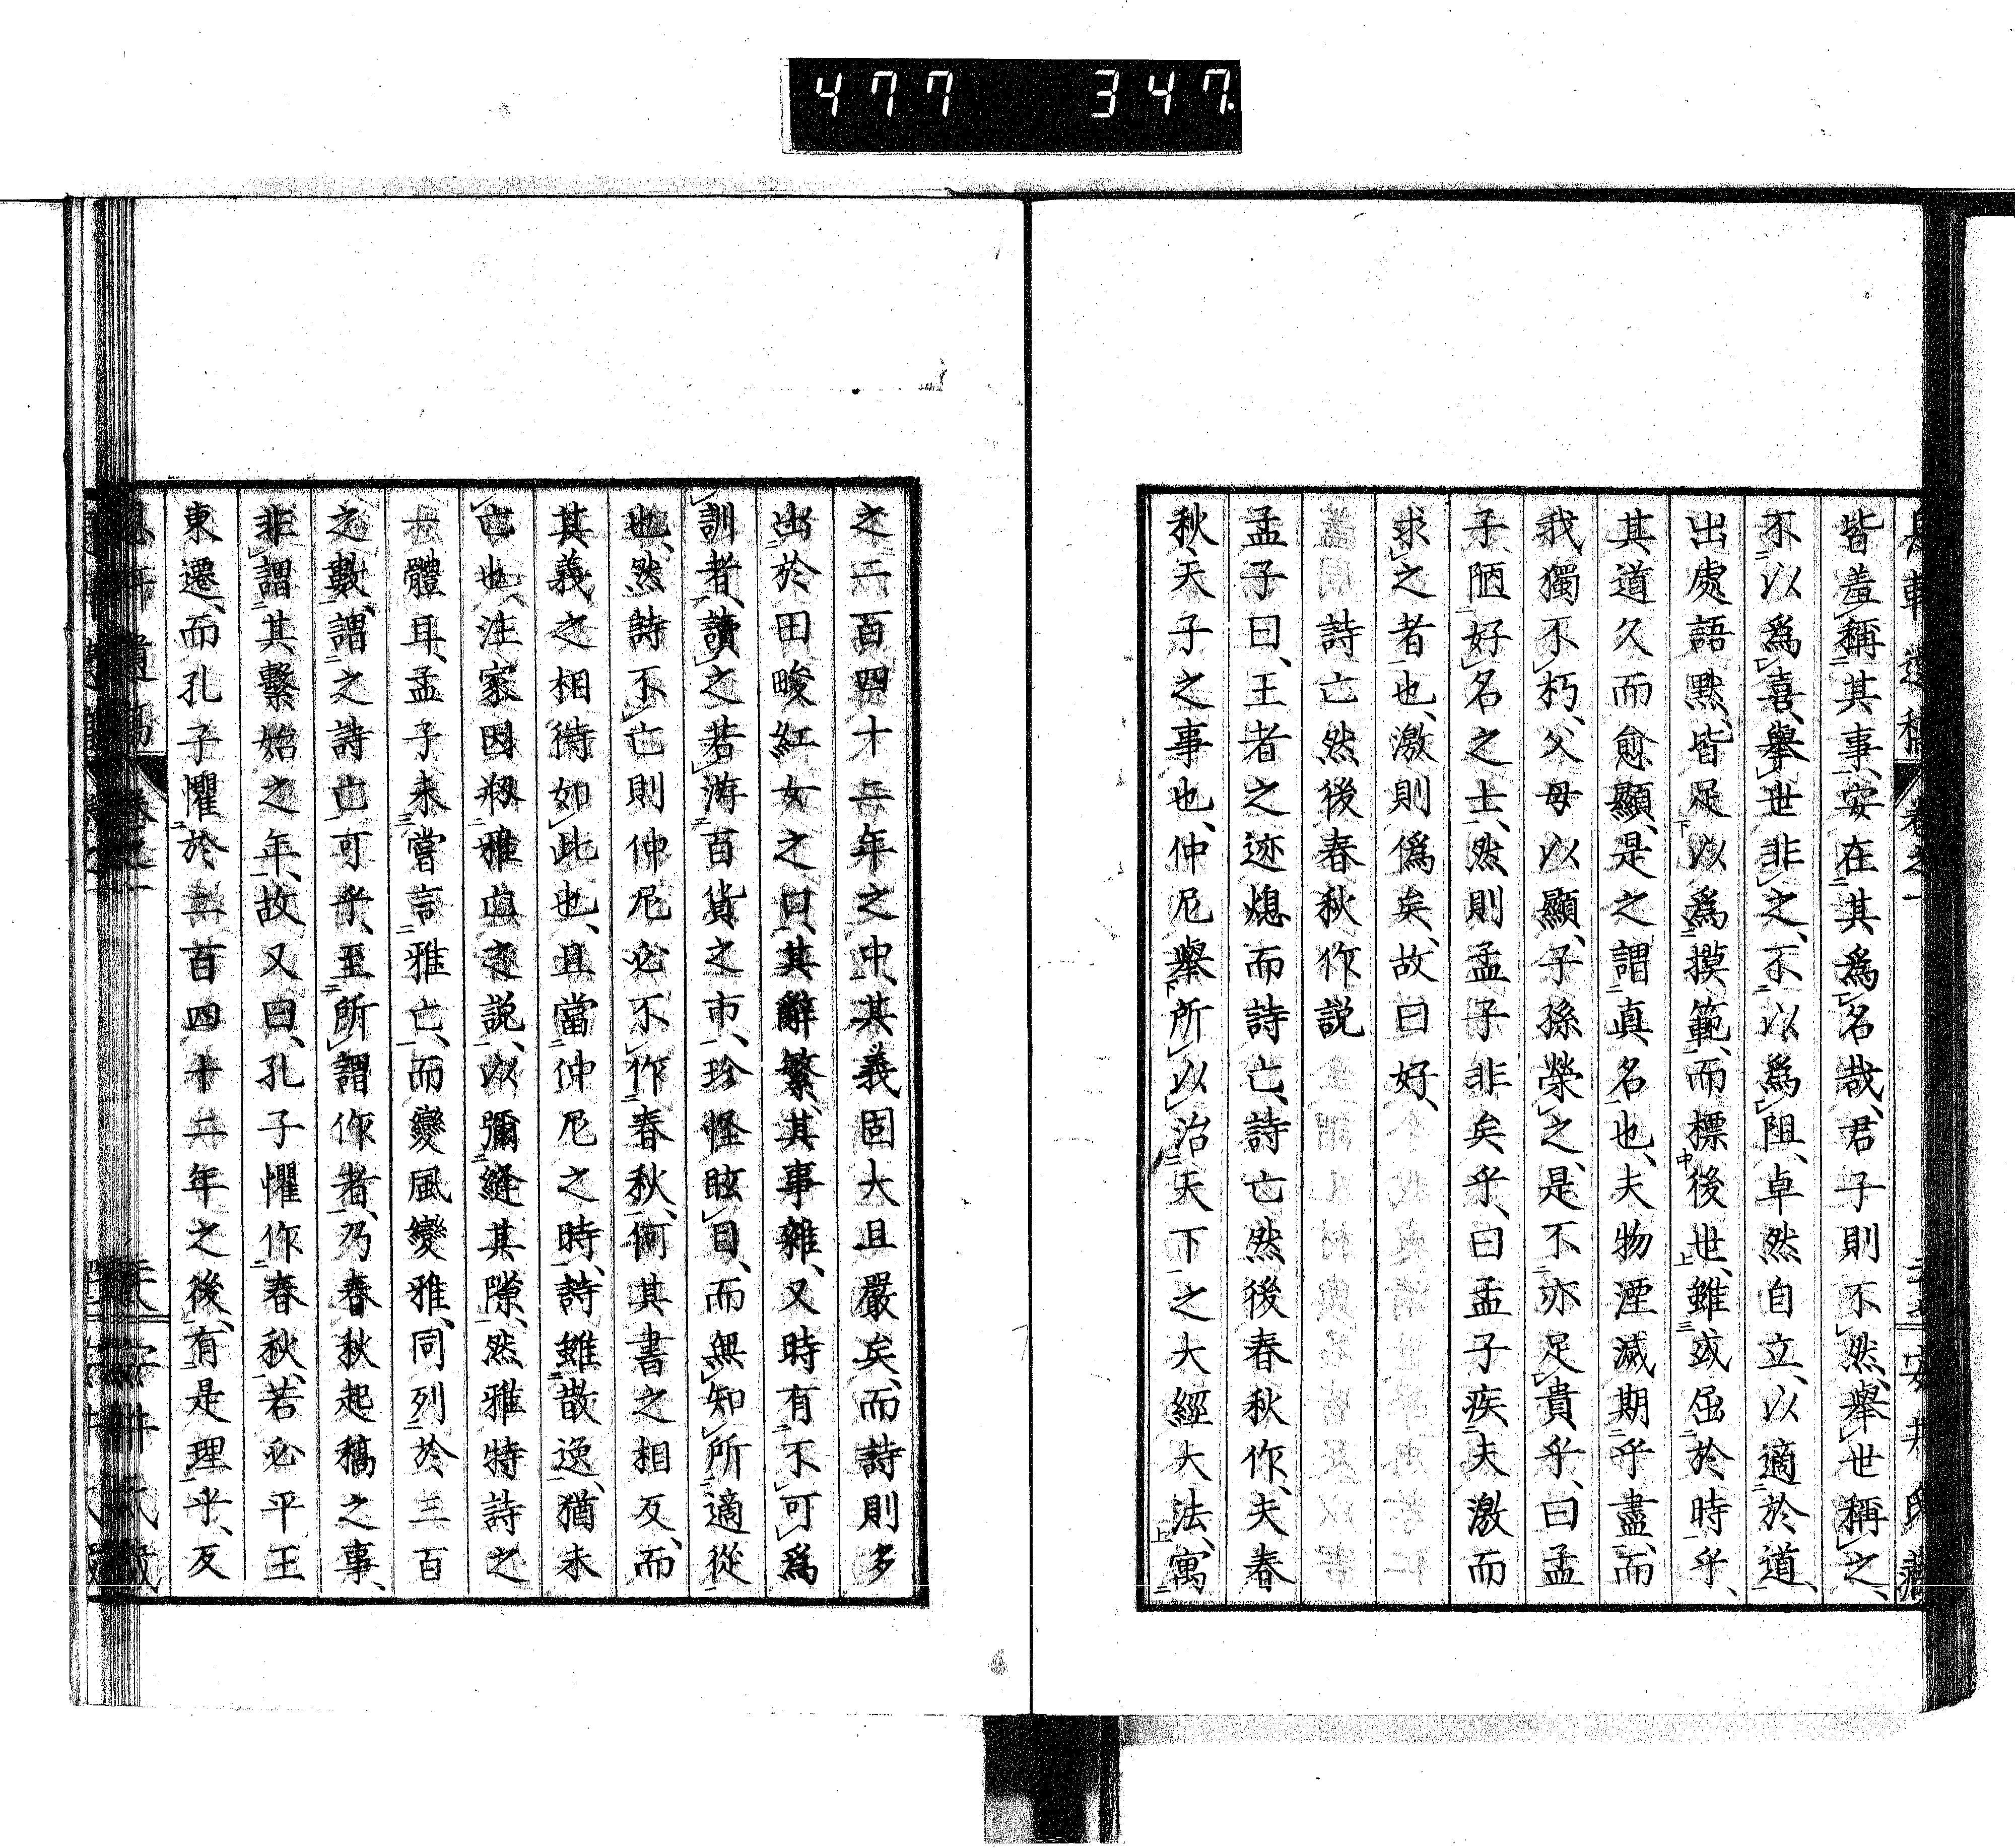 477 347.
息軒遺稿 卷之一 安井氏藏
皆羞稱其事、安在其爲名哉、君子則不然、擧世稱之、
不以爲喜、擧世非之、不以爲阻、卓然自立、以適於道、
出處語默、皆足以爲摸範、而標後世、雖或屈於時乎、
其道久而愈顯、是之謂真名也、夫物湮滅期乎盡、而
我獨不朽、父母以顯、子孫榮之、是不亦足貴乎、曰孟
子陋好名之士、然則孟子非矣乎、曰孟子疾夫激而
求之者也、激則僞矣、故曰好、
詩亡然後春秋作説
孟子曰、王者之迹熄而詩亡、詩亡然後春秋作、夫春
秋、天子之事也、仲尼擧所以治天下之大經大法、寓
之二百四十二年之中、其義固大且嚴矣、而詩則多
出於田畯紅女之口、其辭繁、其事雜、又時有不可爲
訓者、讀之若游百貨之市、珍怪眩目、而無知所適從
也、然詩不亡則仲尼必不作春秋、何其書之相反、而
其義之相待如此也、且當仲尼之時、詩雖散逸、猶未
亡也、注家因扨雅亡之説、以彌縫其隙、然雅特詩之
一體耳、孟子未嘗言雅亡、而變風變雅、同列於三百
之數、謂之詩亡可乎、至所謂作者、乃春秋起稿之事、
非謂其繫始之年、故又曰、孔子懼作春秋、若必平王
東遷、而孔子懼於二百四十二年之後、有是理乎、反